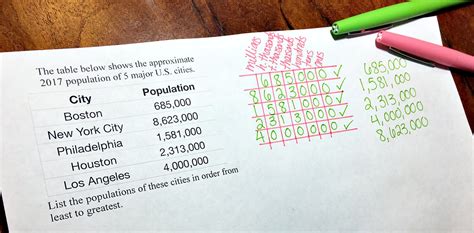 The table below shows the approximate
2017 population of 5 major U.S. cities.
City Population
Boston 685,000
New York City 8,623,000
Philadelphia 1,581,000
Houston 2,313,000
Los Angeles 4,000,000
List the populations of these cities in order from
least to greatest.
millions
h. thousands
t. thousands
thousands
hundreds
tens
ones
685000 ✓
8623000 ✓
1581000 ✓
2313000 ✓
4000000 ✓
685,000
1,581,000
2,313,000
4,000,000
8,623,000